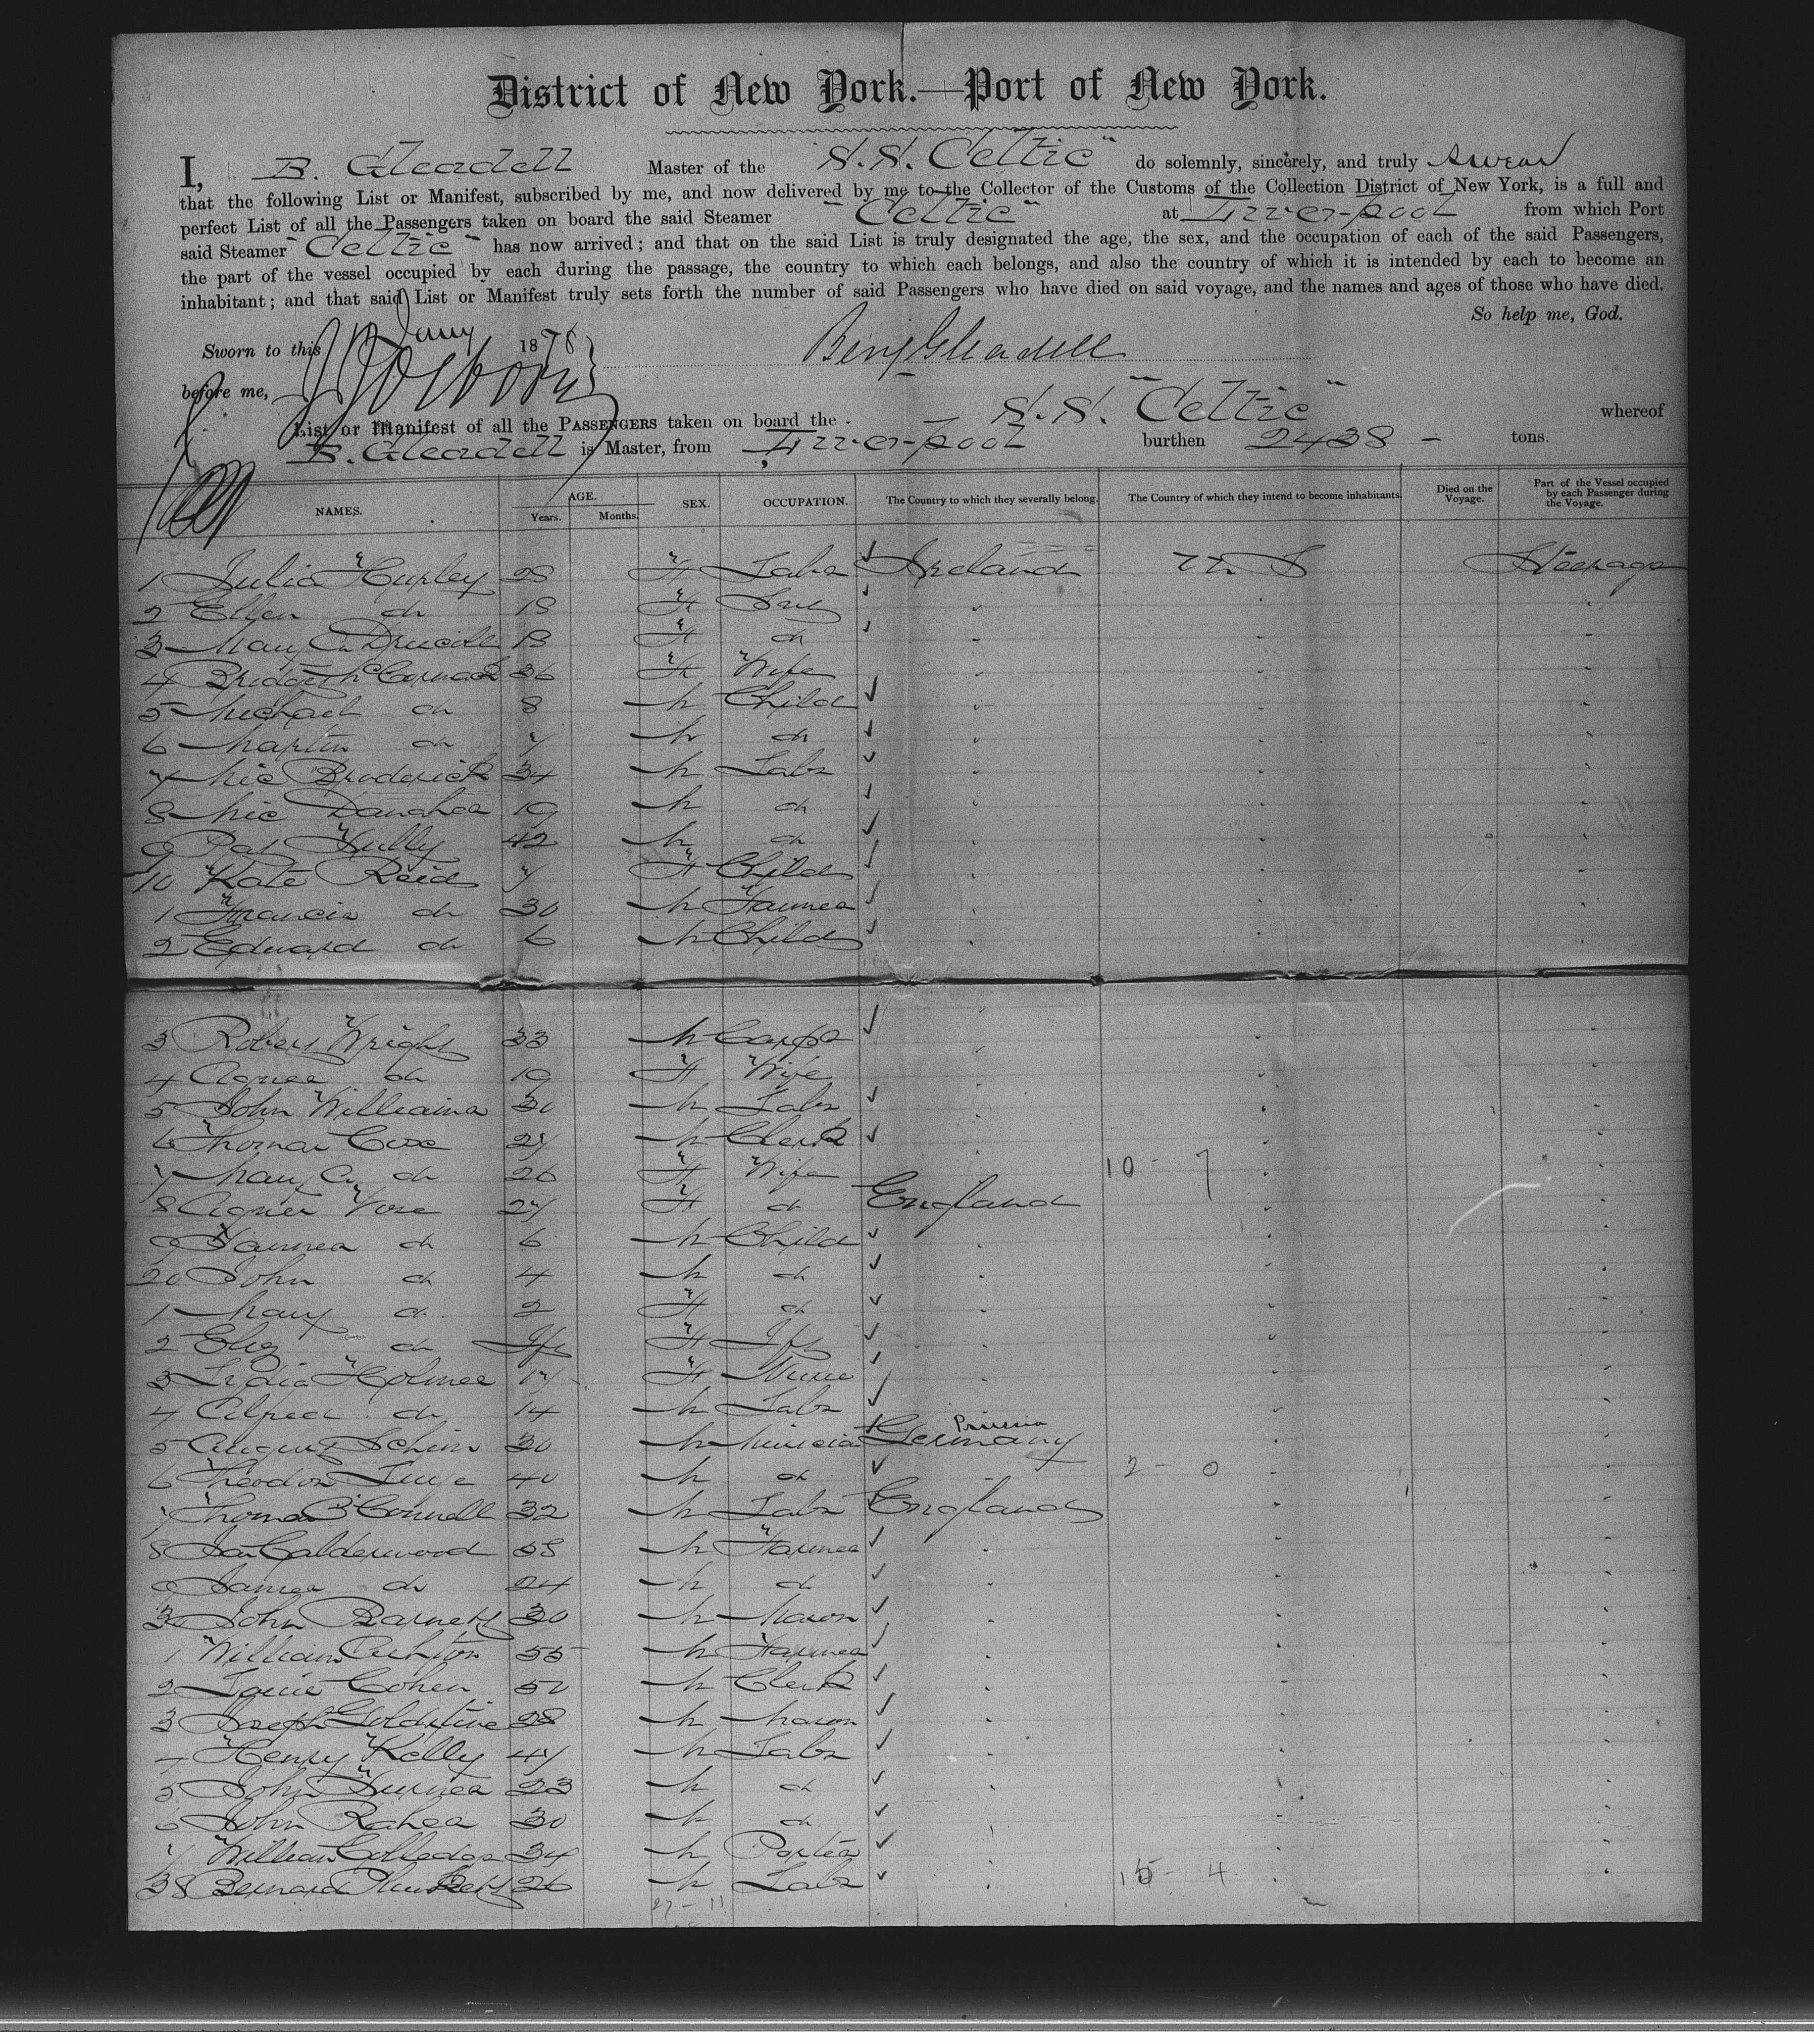 District of New York.—Port of New York.
I, B. Gleadell Master of the "S.S. Celtic" do solemnly, sincerely, and truly swear
that the following List or Manifest, subscribed by me, and now delivered by me to the Collector of the Customs of the Collection District of New York, is a full and
perfect List of all the Passengers taken on board the said Steamer "Celtic" at Liverpool from which Port
said Steamer "Celtic" has now arrived; and that on the said List is truly designated the age, the sex, and the occupation of each of the said Passengers,
the part of the vessel occupied by each during the passage, the country to which each belongs, and also the country of which it is intended by each to become an
inhabitant; and that said List or Manifest truly sets forth the number of said Passengers who have died on said voyage, and the names and ages of those who have died.
So help me, God.
Sworn to this Jany 1878 Benj Gleadell
before me,
List or Manifest of all the PASSENGERS taken on board the S.S. "Celtic" whereof
B. Gleadell is Master, from Liverpool burthen 2438 tons.
NAMES. AGE. Years. Months. SEX. OCCUPATION. The Country to which they severally belong. The Country of which they intend to become inhabitants. Died on the Voyage. Part of the Vessel occupied by each Passenger during the Voyage.
1 Julia Hurley 28 F Labr Ireland U S Steerage
2 Ellen do 18 F
3 Mary A Driscoll 18 F do
4 Bridget McCormack 36 F Wife
5 Michael do 8 M Child
6 Martin do 7 M do
7 Mic Broderick 34 M Labr
8 Mic Danaher 19 M do
9 Pat 42 M do
10 Kate Reid 7 F Child
1 Francis do 30 M Farmer
2 Edward do 6 M Child
3 Robert Wright 33 M Carpr
4 Agnes do 19 F Wife
5 John Williams 30 M Labr
6 Thomas Cox 27 M Clerk
7 Mary A do 26 F Wife 10 - 7
8 Agnes Vose 27 F do England
9 James do 6 M Child
20 John do 4 M do
1 Mary do 2 F do
2 Eliz do Inft F Inft
3 Lydia Holmes 17 F Nurse
4 Alfred do 14 M Labr
5 August Schirn 30 M Musician Germany Prussia
6 Theodor 40 M do 2 - 0
7 Thomas O'Connell 32 M Labr England
8 Jas Calderwood 58 M Farmer
9 James do 24 M do
30 John Barnett 30 M Mason
1 William Ashton 55 M Farmer
2 Louis Cohen 50 M Clerk
3 Joseph Goldstine 28 M Mason
4 Henry Kelly 47 M Labr
5 John Turner 23 M do
6 John Raher 30 M do
7 William Colledge 34 M Porter
38 Bernard Plunkett 26 M Labr 15 - 4
27 - 11